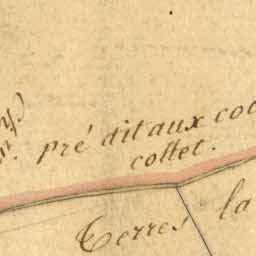 pré dit aux coc
collet.
Terres la